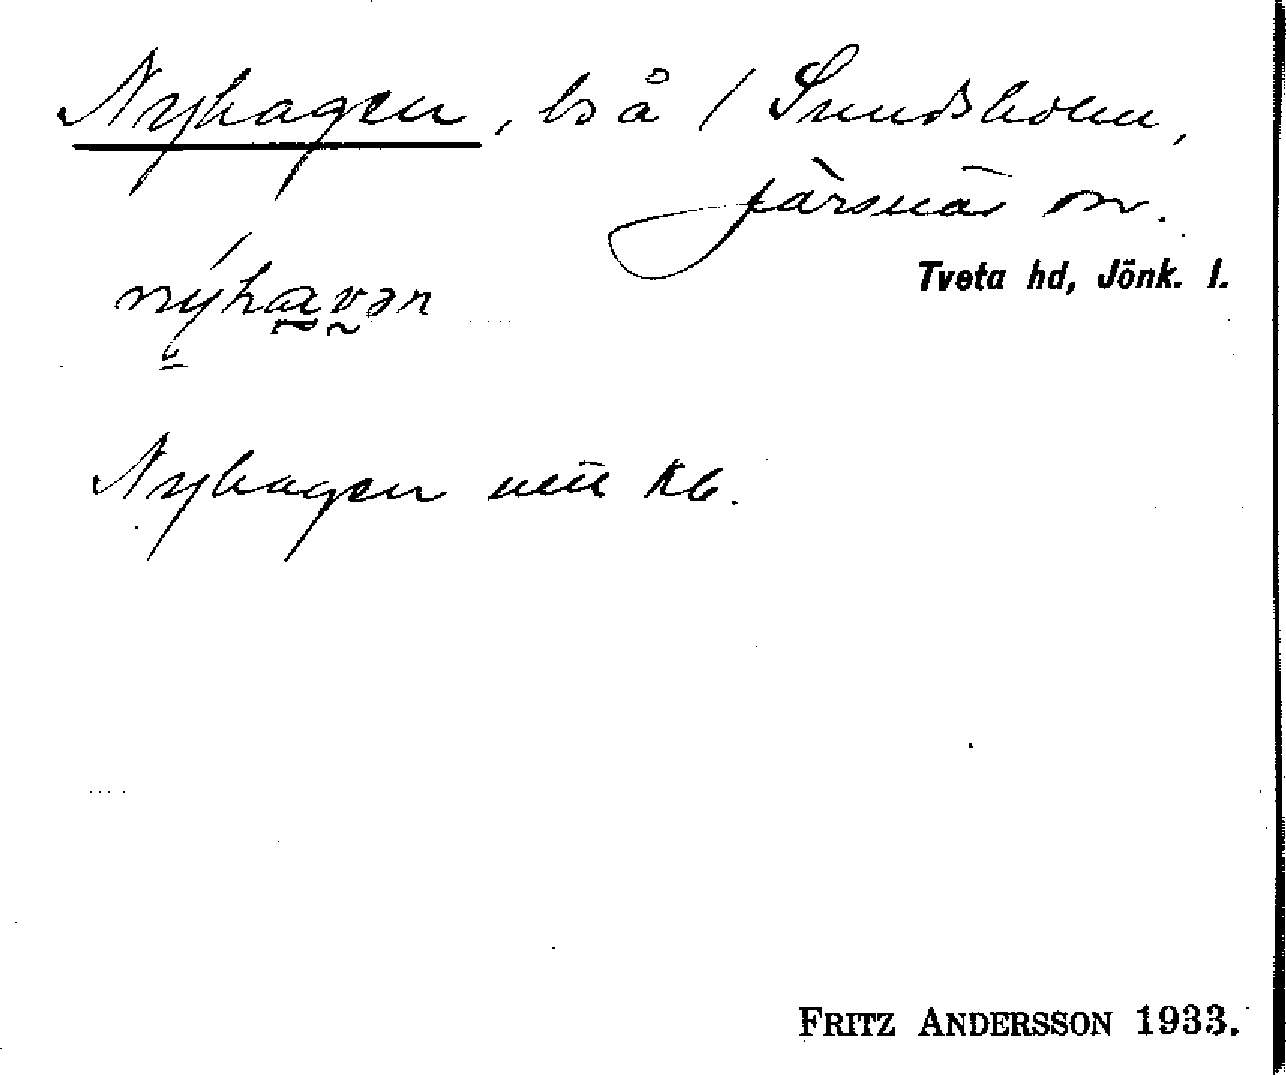 Nyhagen, bs å / Sundsholm,
Järsnäs sn.
Tveta hd, Jönk. l.
nýhavən
Nyhagen Kb.
FRITZ ANDERSSON 1933.